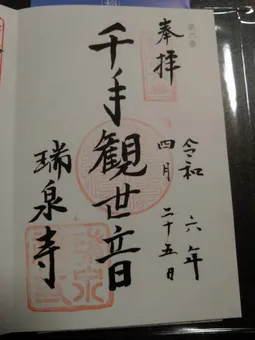 第六番
奉拝
令和 六年
四月二十五日
千手観世音
瑞泉寺